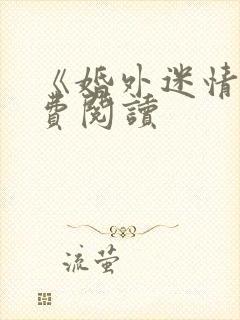 《婚外迷情
費閱讀
流萤